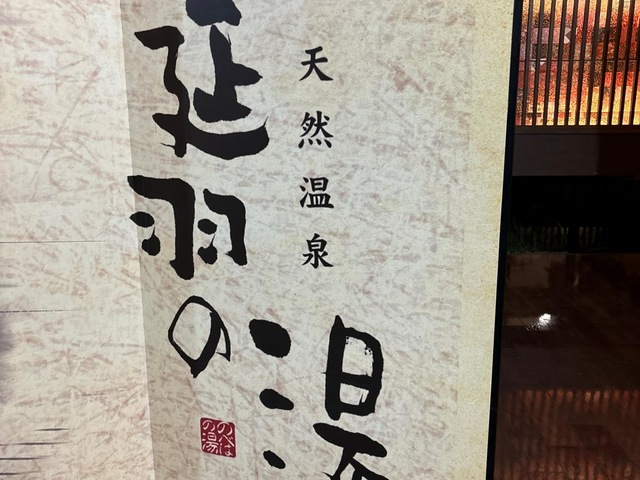 天然温泉
延羽の湯
のべは
の湯